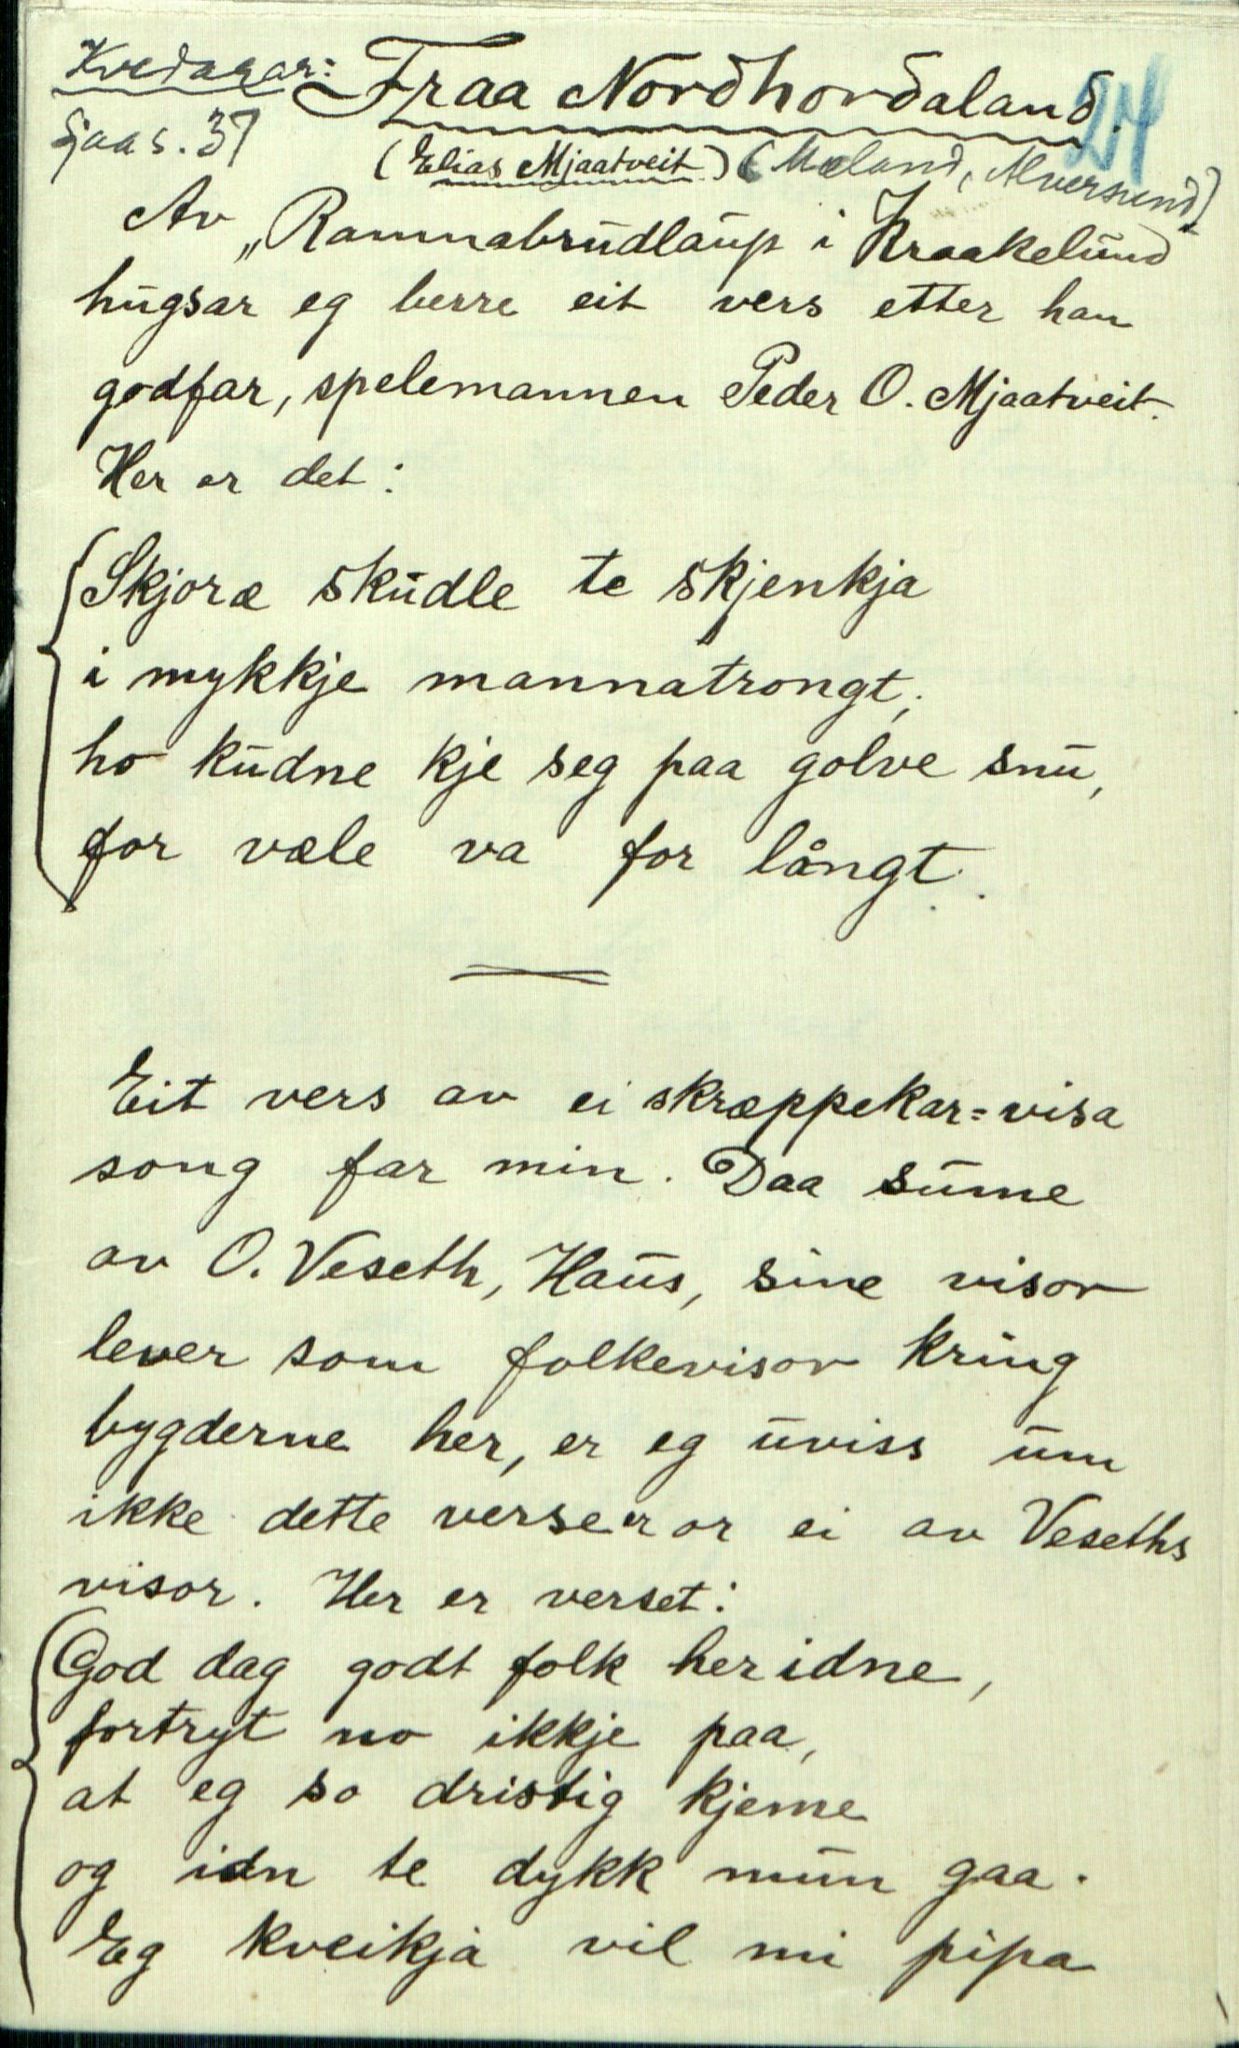 Kvedarar:
Fraa Nordhordaland.
24
sjaa s. 37
(Elias Mjaatveit) (Mæland, Alversund)
Av „Ramnabrudlaup i Kraakelund"
hugsar eg berre eit vers etter han
godfar, spelemannen Peder O. Mjaatveit.
Her er det:
Skjoræ skudle te skjenkja
i mykkje mannatrongt;
ho kudne kje seg paa golve snu,
for væle va for långt.
Eit vers av ei skræppekar-visa
song far min. Daa sume
av O. Veseth, Haus, sine visor
lever som folkevisor kring
bygderne her, er eg uviss um
ikke dette verse er or ei av Veseths
visor. Her er verset:
God dag godt folk her idne,
fortryt no ikkje paa,
at eg so dristig kjeme
og idn te dykk mun gaa.
Eg kveikja vil mi pipa